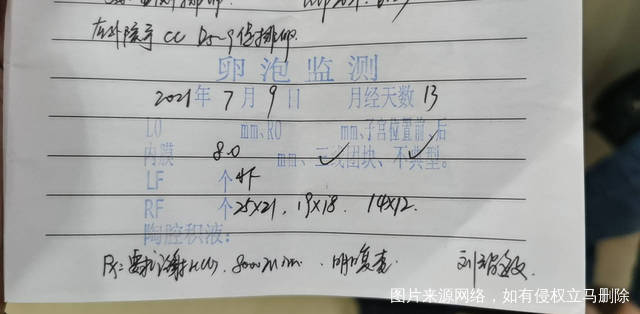 在外院予 CC D5-9 促排卵.
卵泡监测
2021年 7月 9日 月经天数 13
LO mm、RO mm、子宫位置前、后
内膜 8.0 mm、三线团块、不典型。
LF 个
RF 个 25×21, 19×18. 14×12.
陶腔积液:
要求注射HCG. 明日复查.
图片来源网络，如有侵权立马删除